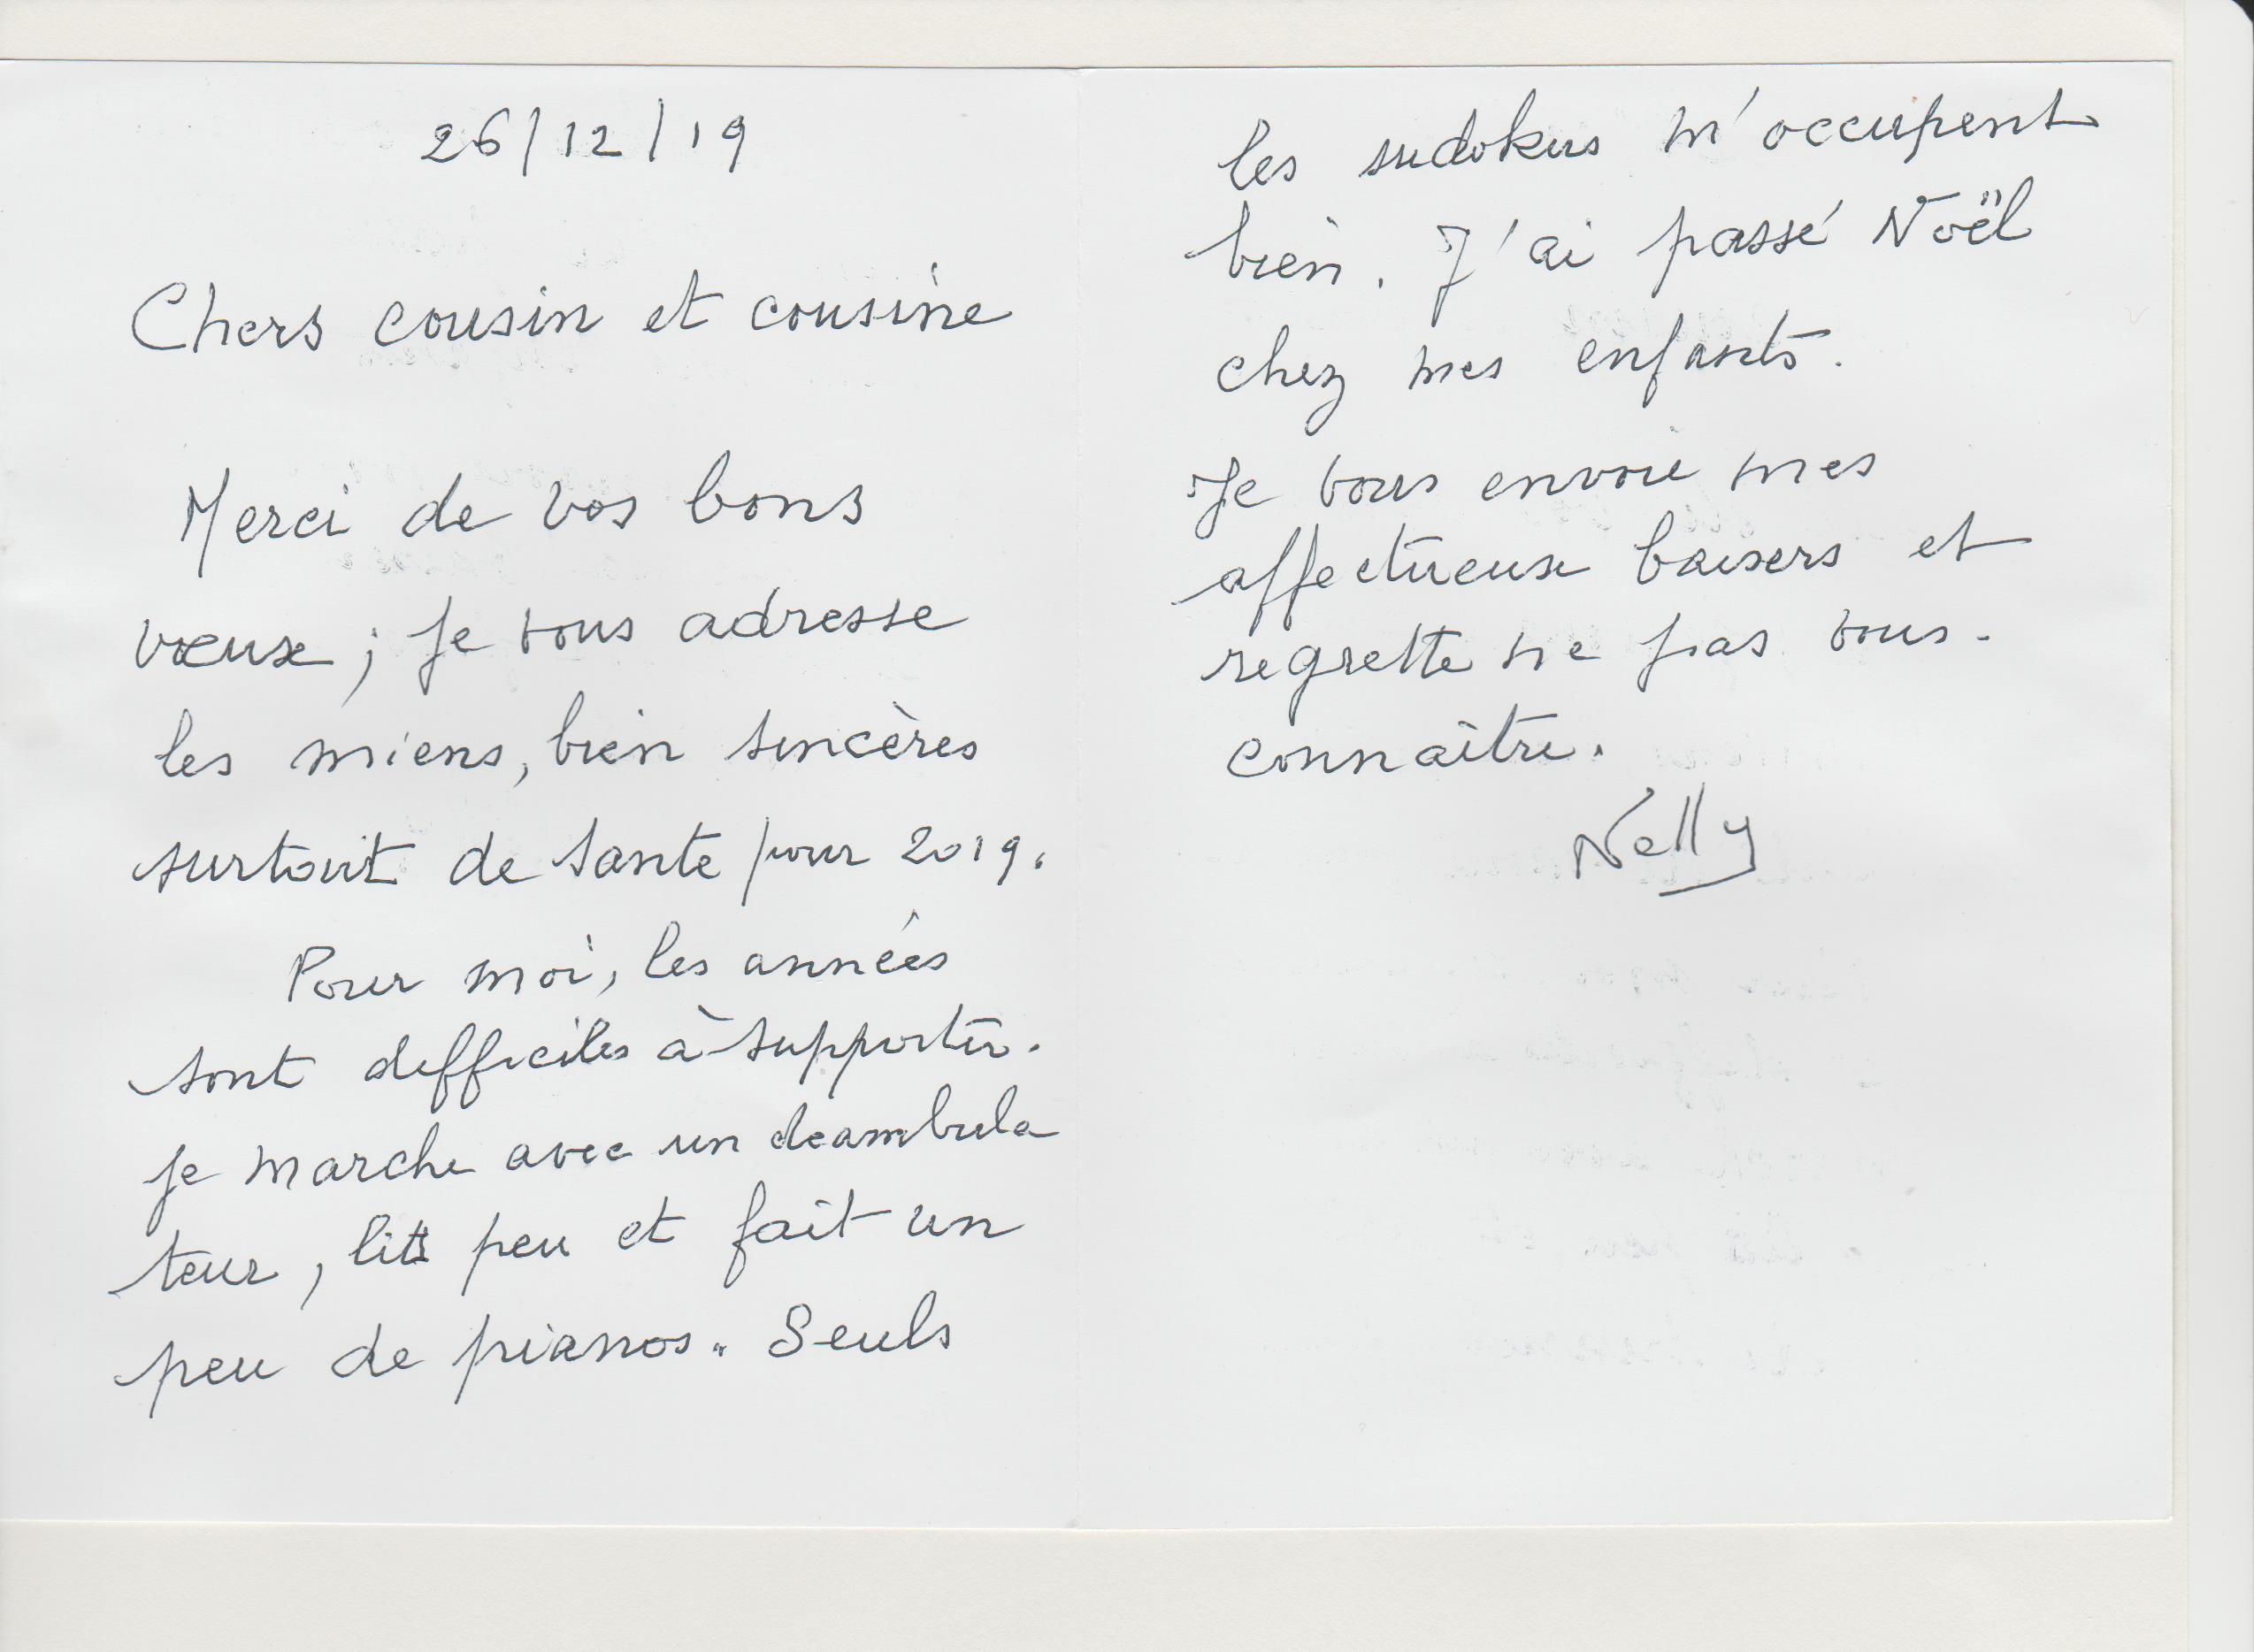 26/12/19
Chers cousin et cousine
Merci de vos bons
vœux ; je vous adresse
les miens, bien sincères
surtout de santé pour 2019.
Pour moi, les années
sont difficiles à supporter.
je marche avec un deambula
teur, lits peu et fait un
peu de pianos. Seuls
les sudokus m'occupent
bien. J'ai passé Noël
chez mes enfants.
Je vous envoie mes
affectueux baisers et
regrette ne pas vous.
connaître.
Nelly